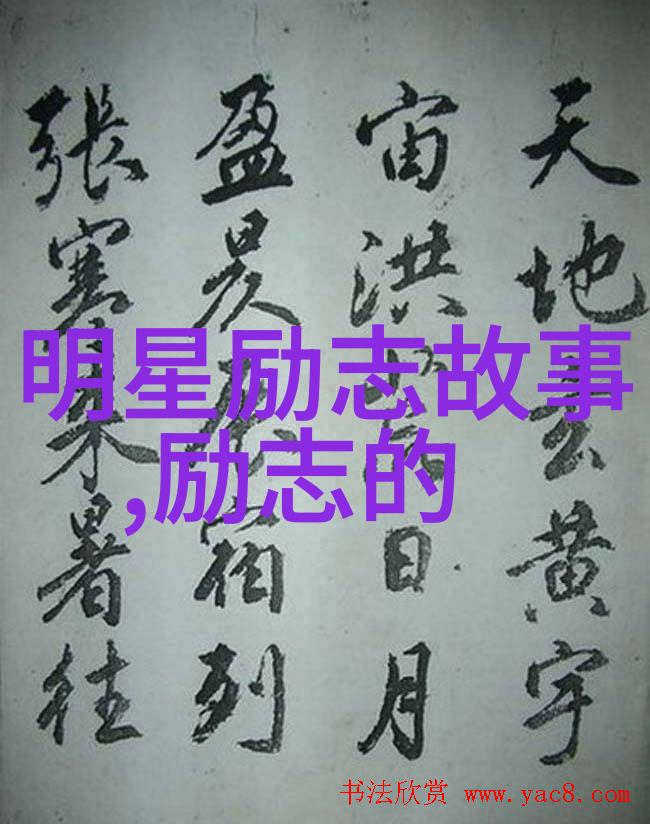 天地玄黄宇
宙洪荒日月
盈昃辰宿列
張寒来暑往
明星励志故事
,励志的
书法欣赏 www.yac8.com